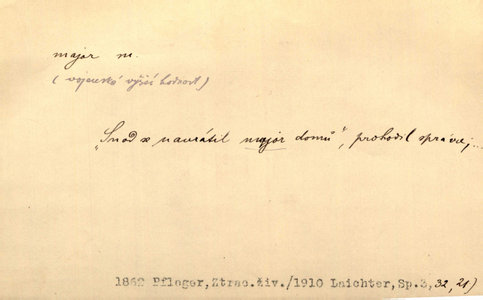 major m.
(vojenská vyšší hodnost)
„Snad se navrátil major domů“, prohodil správce,...
1862 Pfleger,Ztrac.živ./1910 Laichter,Sp.3, 32, 21)